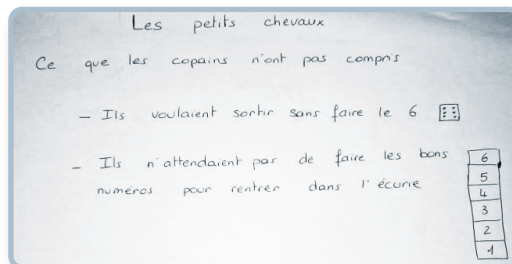 Les petits chevaux
Ce que les copains n'ont pas compris
- Ils voulaient sortir sans faire le 6
- Ils n'attendaient pas de faire les bons
numéros pour rentrer dans l'écurie
6
5
4
3
2
1